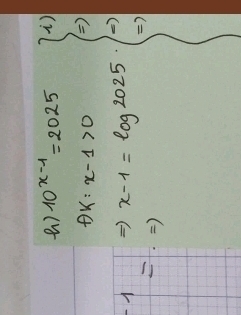 h) 10^{x-1} = 2025
ĐK: x-1 > 0
=> x-1 = log 2025.
=>
i)
=>
=>
=>
-1
=